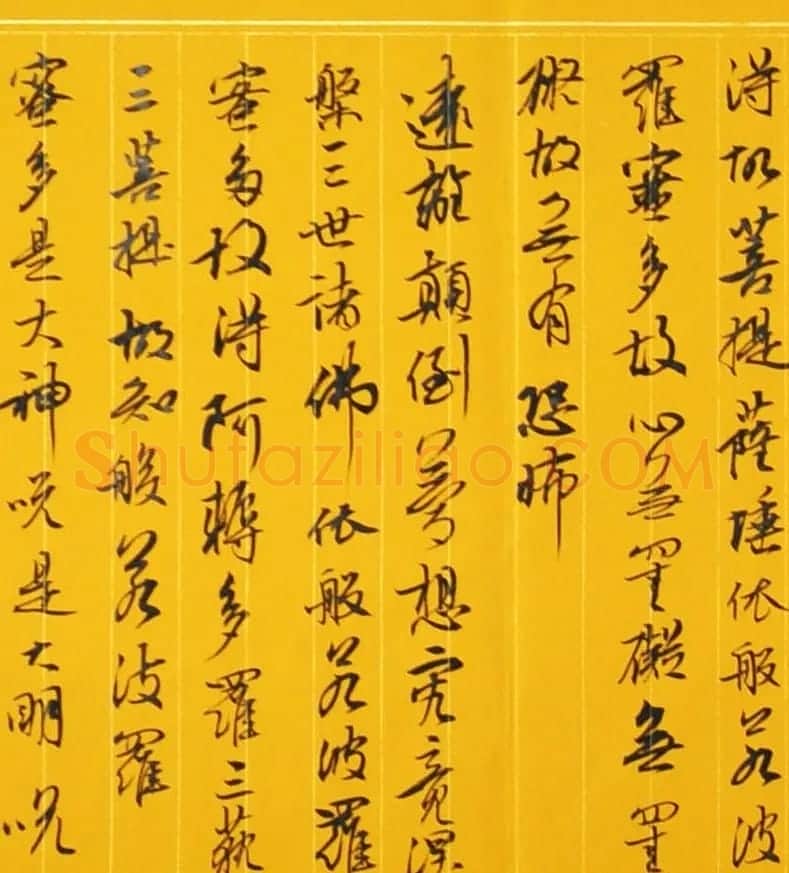 得故菩提薩埵依般若波
羅蜜多故心無罣礙無罣
礙故無有恐怖
遠離顛倒夢想究竟涅
槃三世諸佛依般若波羅
蜜多故得阿耨多羅三藐
三菩提故知般若波羅
蜜多是大神呪是大明呪
Shufaziliao.COM